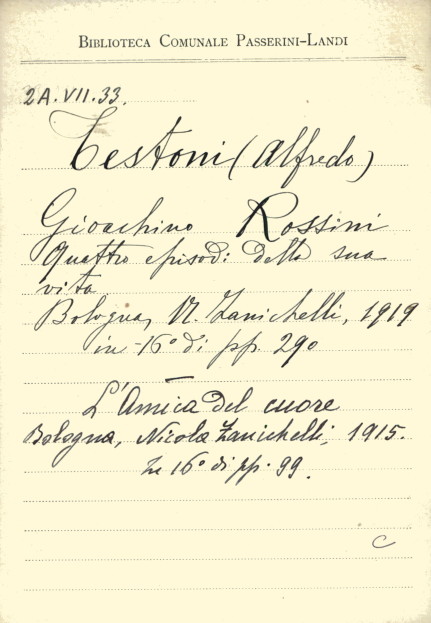 BIBLIOTECA COMUNALE PASSERINI-LANDI
2A.VII.33.
Testoni (Alfredo)
Gioachino Rossini
Quattro episodi della sua
vita
Bologna, N. Zanichelli, 1919
in-16° di pp. 290
L'Amica del cuore
Bologna, Nicola Zanichelli, 1915.
In 16° di pp. 99.
C